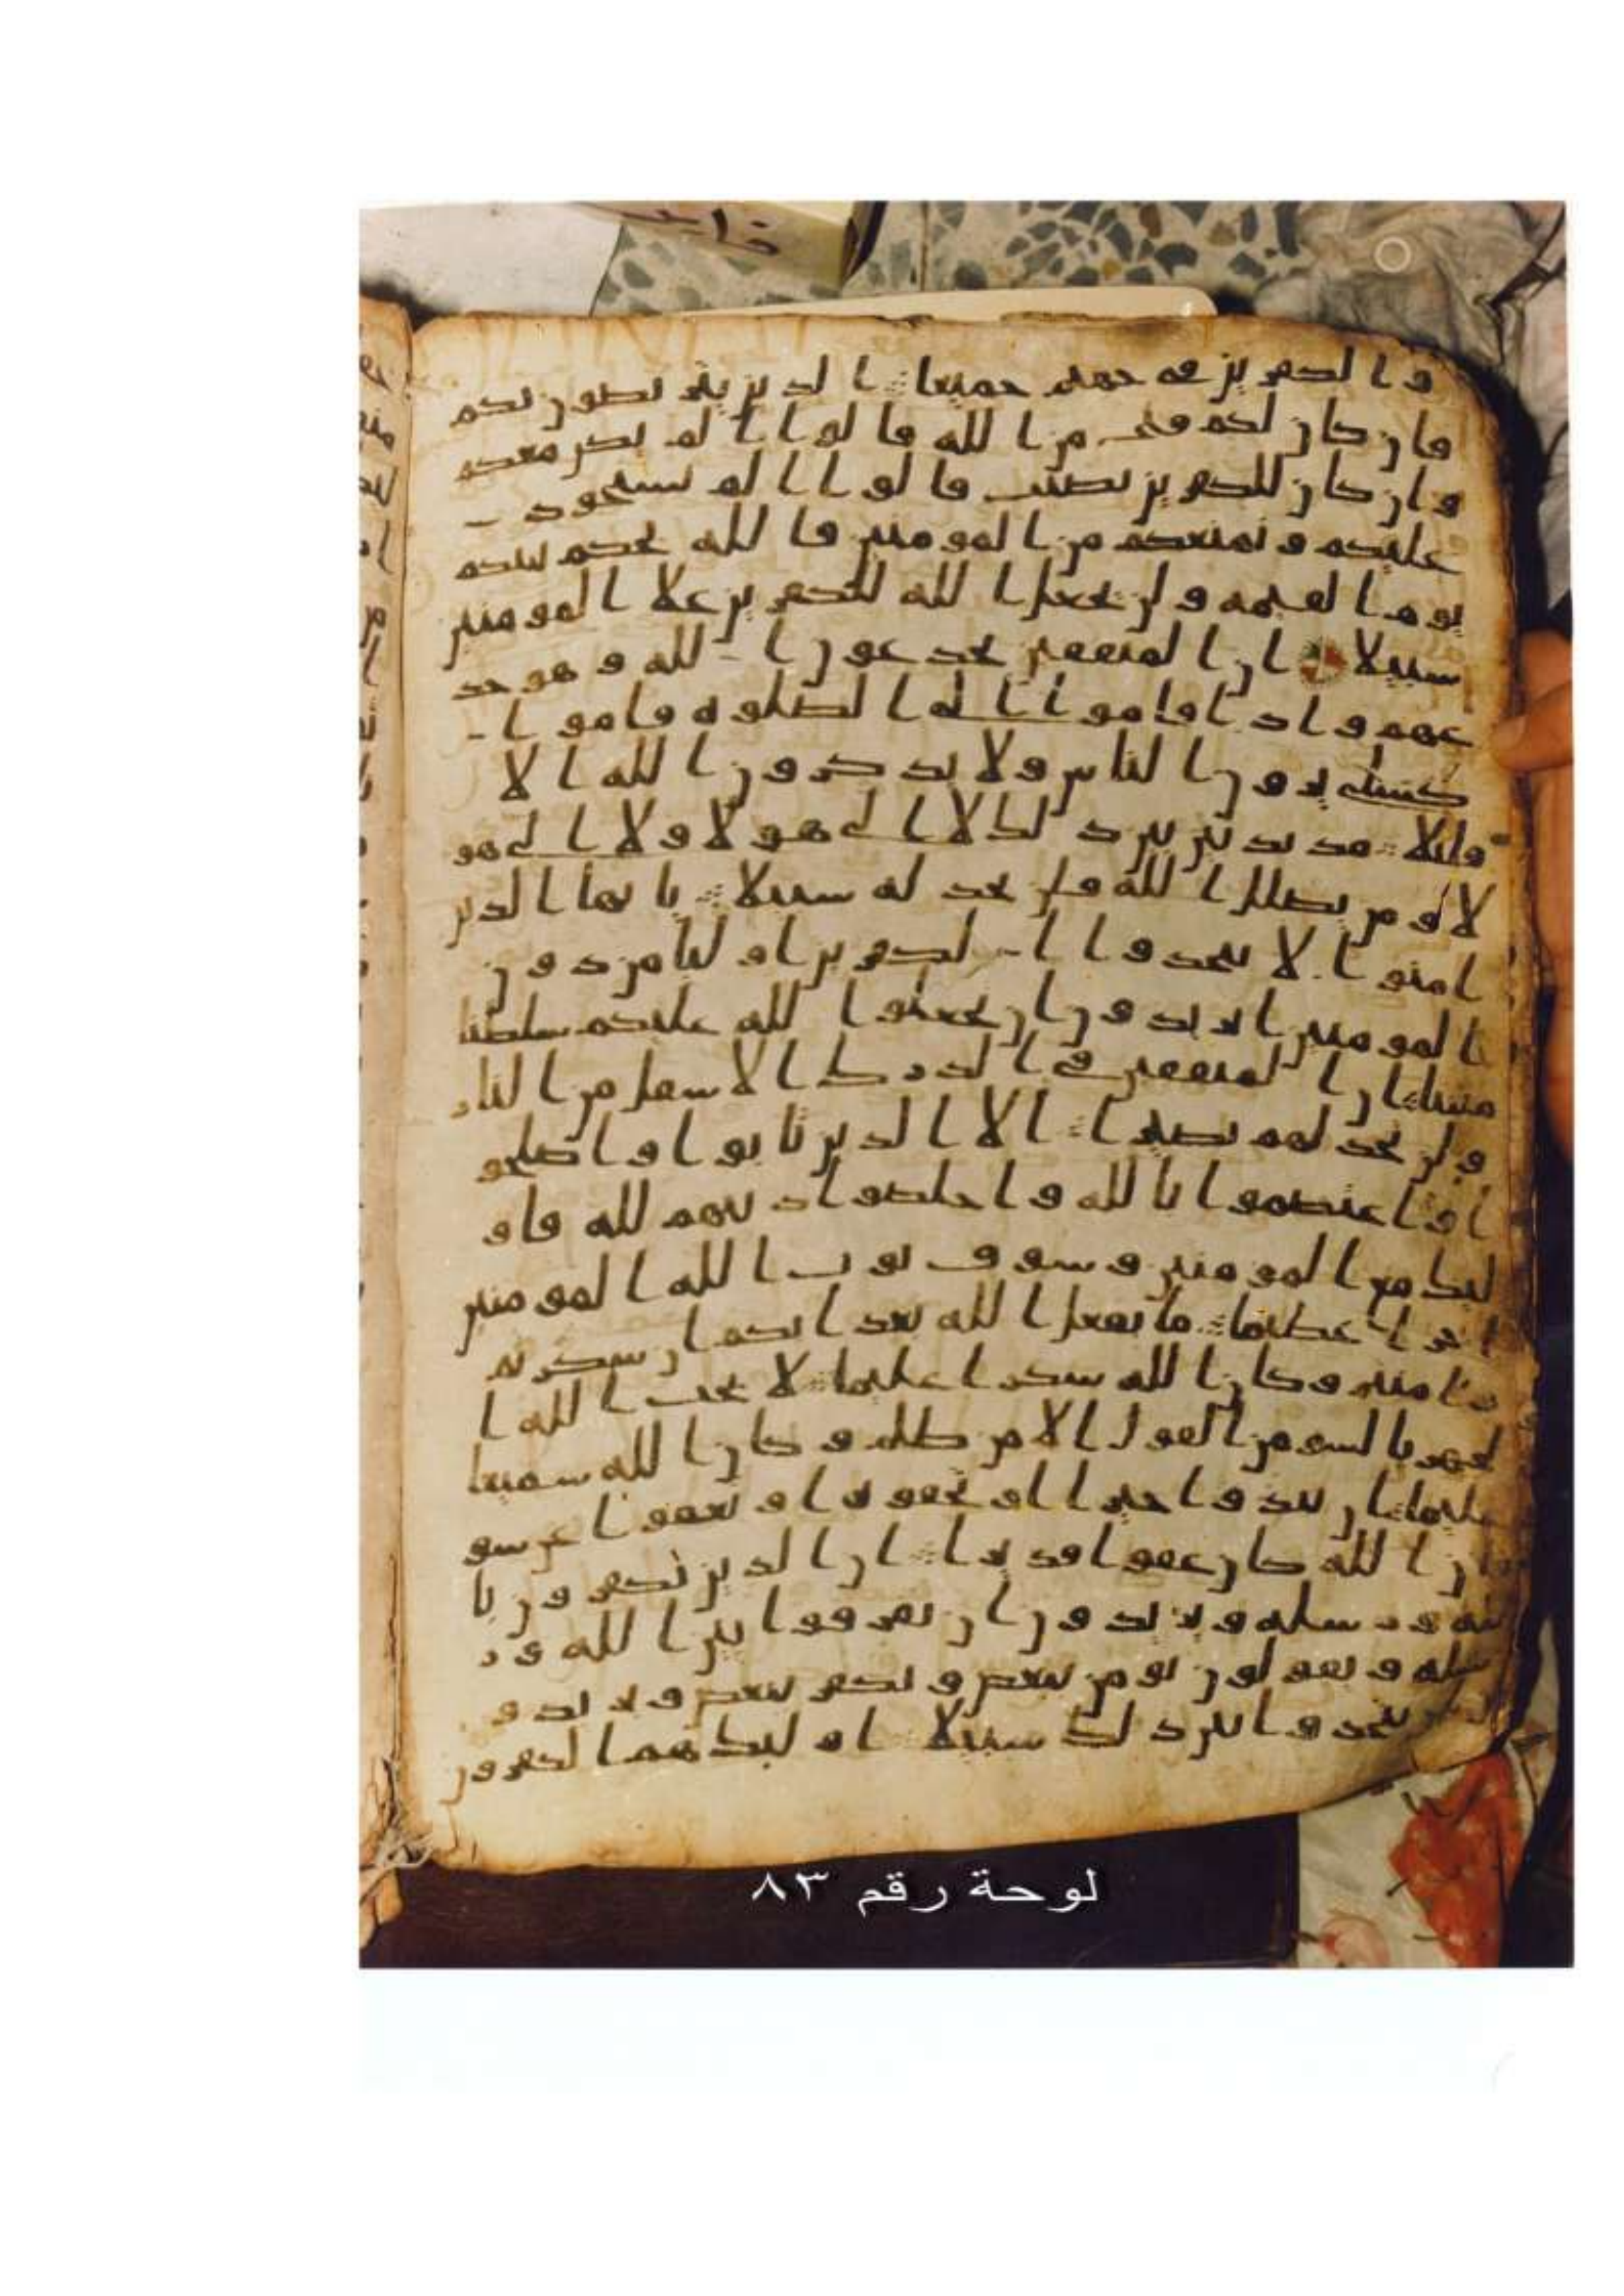 والكفرين في جهنم جميعا الذين يتربصون بكم
فان كان لكم فتح من الله قالوا الم نكن معكم
وان كان للكفرين نصيب قالوا الم نستحوذ
عليكم ونمنعكم من المومنين فالله يحكم بينكم
يوم القيمة ولن يجعل الله للكفرين علا المومنين
سبيلا ان المنفقين يخدعون الله وهو خد
عهم واذا قاموا الى الصلوه قاموا
كسلى يرون الناس ولا يذكرون الله الا
قليلا مذبذبين بين ذلك لا الى هولا ولا الى هو
لا ومن يضلل الله فلن تجد له سبيلا يايها الذين
امنوا لا تتخذوا الكفرين اوليا من دون
المومنين اتريدون ان تجعلوا لله عليكم سلطنا
مبينا ان المنفقين في الدرك الاسفل من النار
ولن تجد لهم نصيرا الا الذين تابوا واصلحو
ا واعتصموا بالله واخلصوا دينهم لله فاو
ليك مع المومنين وسوف يوت الله المومنين
اجرا عظيما ما يفعل الله بعذابكم ان شكرتم
وامنتم وكان الله شكرا عليما لا يحب الله ا
لجهر بالسو من القول الا من ظلم وكان الله سميعا
عليما ان تبدوا خيرا او تخفوه او تعفوا عن سو
فان الله كان عفوا قديرا ان الذين يكفرون با
لله ورسله ويريدون ان يفرقوا بين الله ور
سله ويقولون نومن ببعض ونكفر ببعض ويريدو
ن ان يتخذوا بين ذلك سبيلا اوليك هم الكفرون
لوحة رقم ٨٣